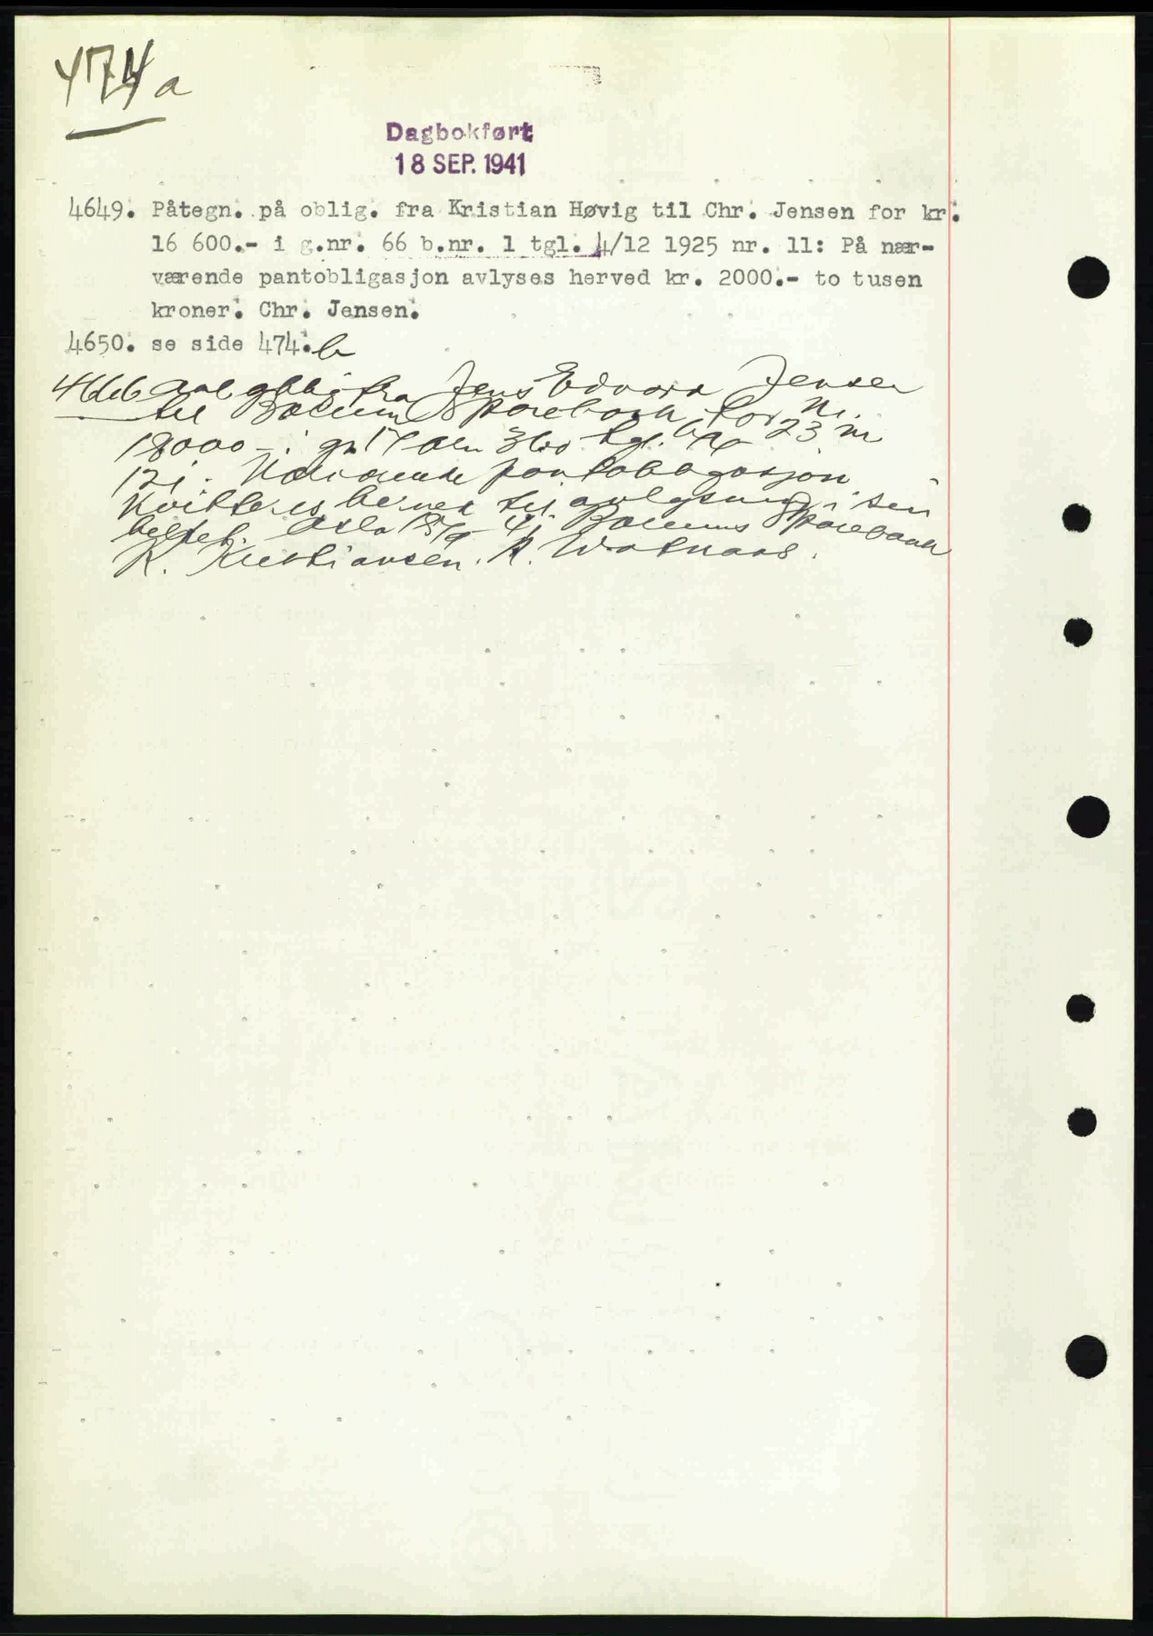 474a
Dagbokført
18 SEP. 1941
4649. Påtegn. på oblig. fra Kristian Høvig til Chr. Jensen for kr.
16 600.- i g.nr. 66 b.nr. 1 tgl. 4/12 1925 nr. 11: På nær-
værende pantobligasjon avlyses herved kr. 2000.- to tusen
kroner. Chr. Jensen.
4650. se side 474.b
fra Jens Edvard Jensen
til Bærum Sparebank for kr.
18000 - i gn. 17 bn. 360 tgl. 23 nr
121. Nærværende pantobligasjon
kvitteres herved til avlysning i sin
helhet. Oslo 18/9-41 Bærums Sparebank
K. Kristiansen. A.